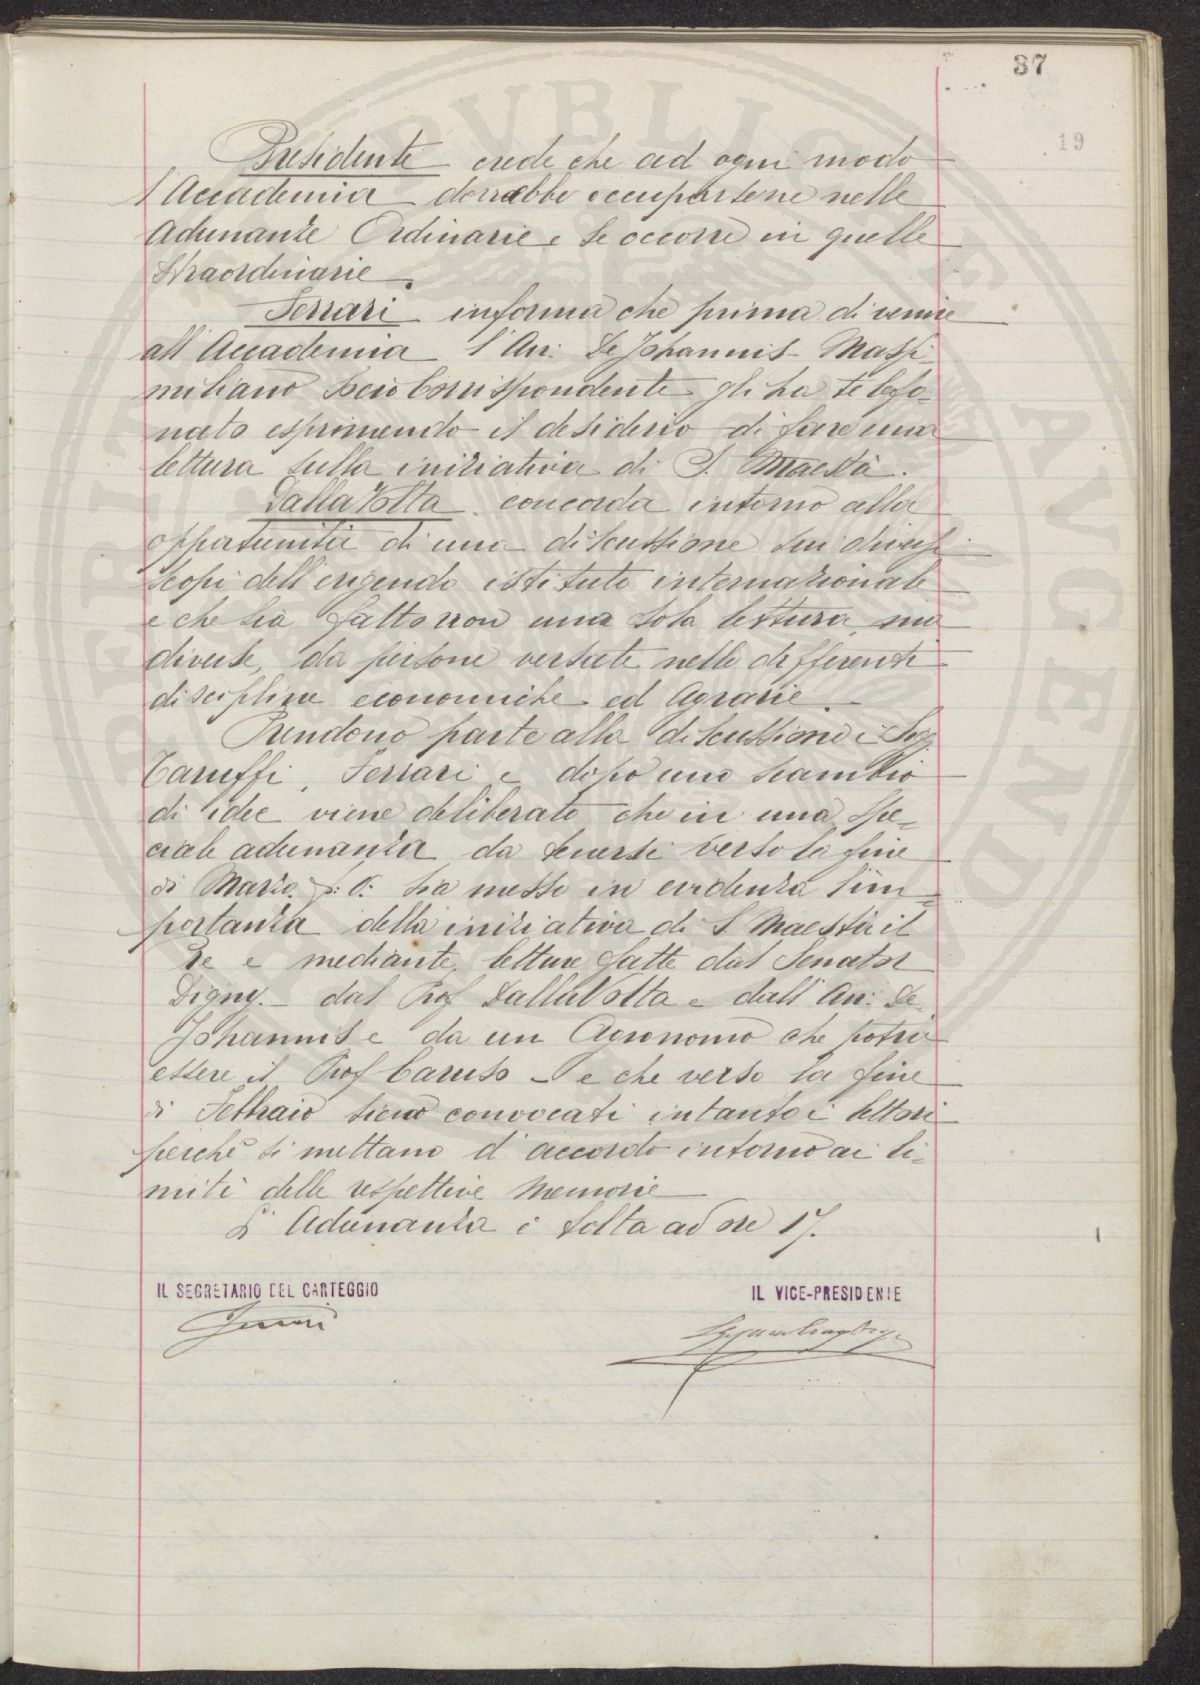 37
19
Presidente crede che ad ogni modo
l'Accademia dovrebbe occuparsene nelle
Adunanze Ordinarie e se occorre in quelle
Straordinarie.
Ferrari informa che prima di venire
all'Accademia l'Avv. De Johannis Massi
miliano socio Corrispondente gli ha telefo=
nato esprimendo il desiderio di fare una
lettura sulla iniziativa di S. Maestà.
Dalla Volta concorda intorno alla
opportunità di una discussione sui diversi
scopi dell'erigendo istituto internazionale
e che sia fatta non una sola lettura, ma
diverse, da persone versate nelle differenti
discipline economiche ed Agrarie.
Prendono parte alla discussione i Sigg
Taruffi, Ferrari e dopo uno scambio
di idee viene deliberato che in una spe=
ciale adunanza da tenersi verso la fine
di Marzo p: v: sia messo in evidenza l'im=
portanza della iniziativa di S Maestà il
Re e mediante letture fatte dal Senator
Digny - dal Prof Dalla Volta e dall'Avv: De
Johannis e da un Agronomo che potria
essere il Prof Caruso - e che verso la fine
di Febbraio sieno convocati intanto i lettori
perchè si mettano d'accordo intorno ai li=
miti delle respettive Memorie
L'Adunanza è sciolta ad ore 17.
IL SEGRETARIO DEL CARTEGGIO
IL VICE-PRESIDENTE